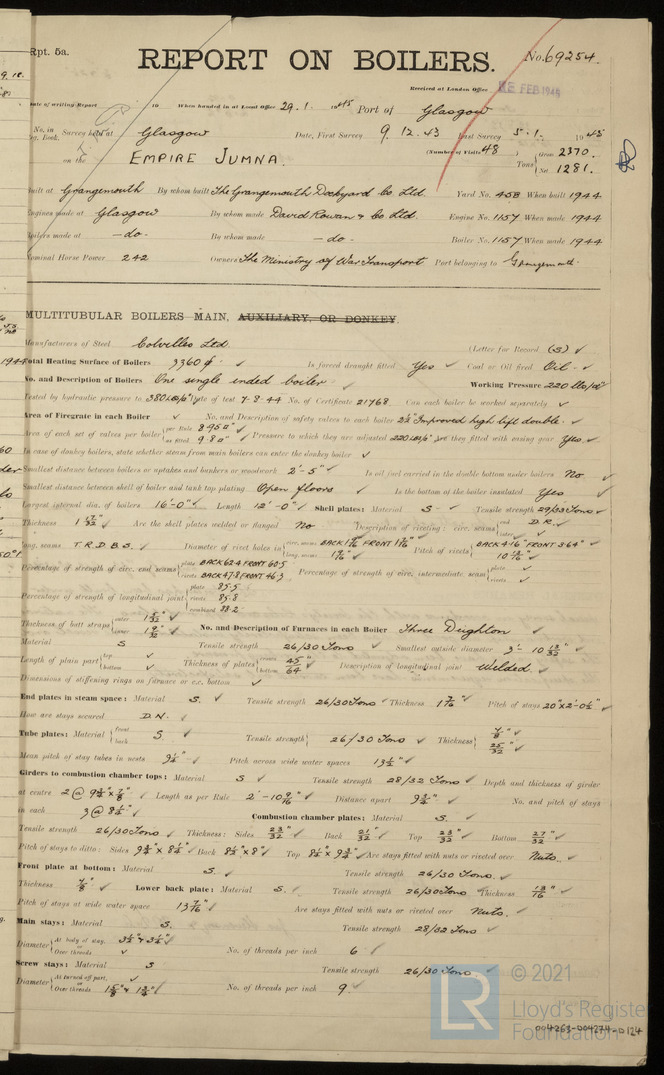 Rpt. 5a.
REPORT ON BOILERS.
No. 69254.
Received at London Office FEB 1945
Date of writing Report 19 When handed in at Local Office 29.1. 1945 Port of Glasgow
No. in Reg. Book. Survey held at Glasgow Date, First Survey 9.12.43 Last Survey 5.1. 1945
on the EMPIRE JUMNA. (Number of Visits 48 ) Tons { Gross 2370. Net 1281.
Built at Grangemouth By whom built The Grangemouth Dockyard Co Ltd. Yard No. 458 When built 1944
Engines made at Glasgow By whom made David Rowan & Co Ltd. Engine No. 1157 When made 1944
Boilers made at -do- By whom made -do- Boiler No. 1157 When made 1944
Nominal Horse Power 242 Owners The Ministry of War Transport Port belonging to Grangemouth.
MULTITUBULAR BOILERS MAIN, AUXILIARY, OR DONKEY.
Manufacturers of Steel Colvilles Ltd. (Letter for Record (S) ✓
Total Heating Surface of Boilers 3360 ✓ Is forced draught fitted Yes ✓ Coal or Oil fired Oil ✓
No. and Description of Boilers One single ended boiler ✓ Working Pressure 220 lbs/□"
Tested by hydraulic pressure to 380 Date of test 7.8.44 No. of Certificate 21768 Can each boiler be worked separately ✓
Area of Firegrate in each Boiler ✓ No. and Description of safety valves to each boiler Improved high lift double. ✓
Area of each set of valves per boiler { per Rule 8.95□" as fitted 9.8□" ✓ Pressure to which they are adjusted 220 Are they fitted with easing gear Yes. ✓
In case of donkey boilers, state whether steam from main boilers can enter the donkey boiler ✓
Smallest distance between boilers or uptakes and bunkers or woodwork 2'-5" ✓ Is oil fuel carried in the double bottom under boilers No ✓
Smallest distance between shell of boiler and tank top plating Open floors ✓ Is the bottom of the boiler insulated Yes ✓
Largest internal dia. of boilers 16'-0" ✓ Length 12'-0" ✓ Shell plates: Material S ✓ Tensile strength 29/33 Tons ✓
Thickness 1 17/32 ✓ Are the shell plates welded or flanged No Description of riveting: circ. seams { end D.R. ✓ inter. ✓
long. seams T.R.D.B.S. ✓ Diameter of rivet holes in { circ. seams BACK 1 9/16 FRONT 1 9/16 ✓ long. seams 1 9/16 ✓ Pitch of rivets { BACK 4.16" FRONT 3.64" ✓
Percentage of strength of circ. end seams { plate BACK 62.4 FRONT 60.5 rivets BACK 47.8 FRONT 46.3 Percentage of strength of circ. intermediate seam { plate ✓ rivets ✓
Percentage of strength of longitudinal joint { plate 85.5 rivets 85.8 combined 88.2
Thickness of butt straps { outer 1 5/32 ✓ inner 1 9/32 ✓ No. and Description of Furnaces in each Boiler Three Deighton ✓
Material S Tensile strength 26/30 Tons ✓ Smallest outside diameter 3'-10 13/32 ✓
Length of plain part { top ✓ bottom ✓ Thickness of plates { crown bottom 45/64 ✓ Description of longitudinal joint Welded. ✓
Dimensions of stiffening rings on furnace or c.c. bottom ✓
End plates in steam space: Material S. ✓ Tensile strength 26/30 Tons ✓ Thickness 1 7/16 ✓ Pitch of stays 20" x 2'-0½" ✓
How are stays secured D.N. ✓
Tube plates: Material { front back S ✓ Tensile strength { 26/30 Tons ✓ Thickness { 7/8" ✓ 25/32" ✓
Mean pitch of stay tubes in nests ✓ Pitch across wide water spaces 13½" ✓
Girders to combustion chamber tops: Material S ✓ Tensile strength 28/32 Tons ✓ Depth and thickness of girder
at centre 2 @ 9¾" x 7/8" ✓ Length as per Rule 2'-10 9/16" ✓ Distance apart 9¾" ✓ No. and pitch of stays
in each 3 @ 8¼" ✓ Combustion chamber plates: Material S. ✓
Tensile strength 26/30 Tons ✓ Thickness: Sides 23/32" ✓ Back 21/32" ✓ Top 23/32" ✓ Bottom 27/32" ✓
Pitch of stays to ditto: Sides 9¾" x 8¼" ✓ Back 8½" x 8" ✓ Top 8¼" x 9¾" ✓ Are stays fitted with nuts or riveted over Nuts. ✓
Front plate at bottom: Material S. ✓ Tensile strength 26/30 Tons. ✓
Thickness 7/8" ✓ Lower back plate: Material S. ✓ Tensile strength 26/30 Tons ✓ Thickness 13/16" ✓
Pitch of stays at wide water space 13 7/16" ✓ Are stays fitted with nuts or riveted over Nuts. ✓
Main stays: Material S. Tensile strength 28/32 Tons ✓
Diameter { At body of stay, 3½" & 3¼" ✓ or Over threads ✓ No. of threads per inch 6 ✓
Screw stays: Material S Tensile strength 26/30 Tons ✓
Diameter { At turned off part, ✓ or Over threads 1 5/8" & 1¾" ✓ No. of threads per inch 9 ✓
LR
© 2021
Lloyd's Register
Foundation
004263-004274-0124